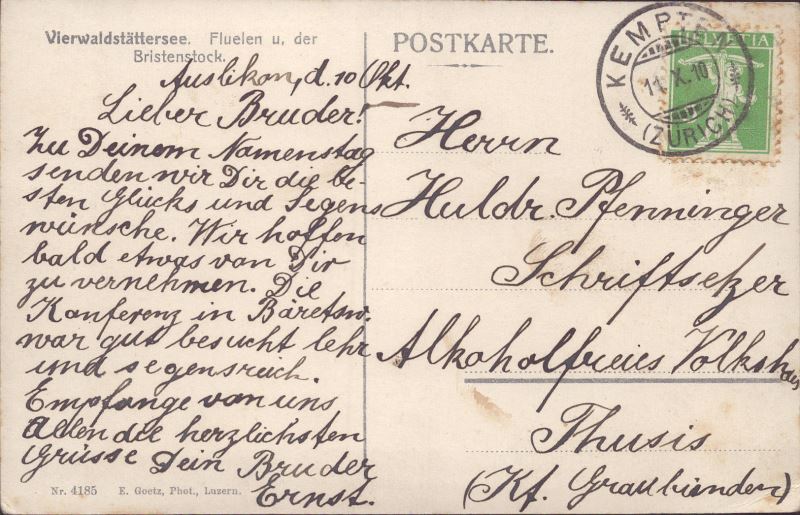 Vierwaldstättersee. Fluelen u. der
Bristenstock.
Auslikon, d. 10 Okt.
Lieber Bruder!
Zu Deinem Namenstag
senden wir Dir die be-
sten Glücks und Segens
wünsche. Wir hoffen
bald etwas von Dir
zu vernehmen. Die
Konferenz in Bäretsw.
war gut besucht lehr
und segensreich.
Empfange von uns
Allen die herzlichsten
Grüsse Dein Bruder
Ernst.
Nr. 4185 E. Goetz, Phot., Luzern.
POSTKARTE.
KEMPTEN
11. X. 10
(ZÜRICH)
HELVETIA
Herrn
Huldr. Pfenninger
Schriftsetzer
Alkoholfreies Volkshaus
Thusis
(Kt. Graubünden)